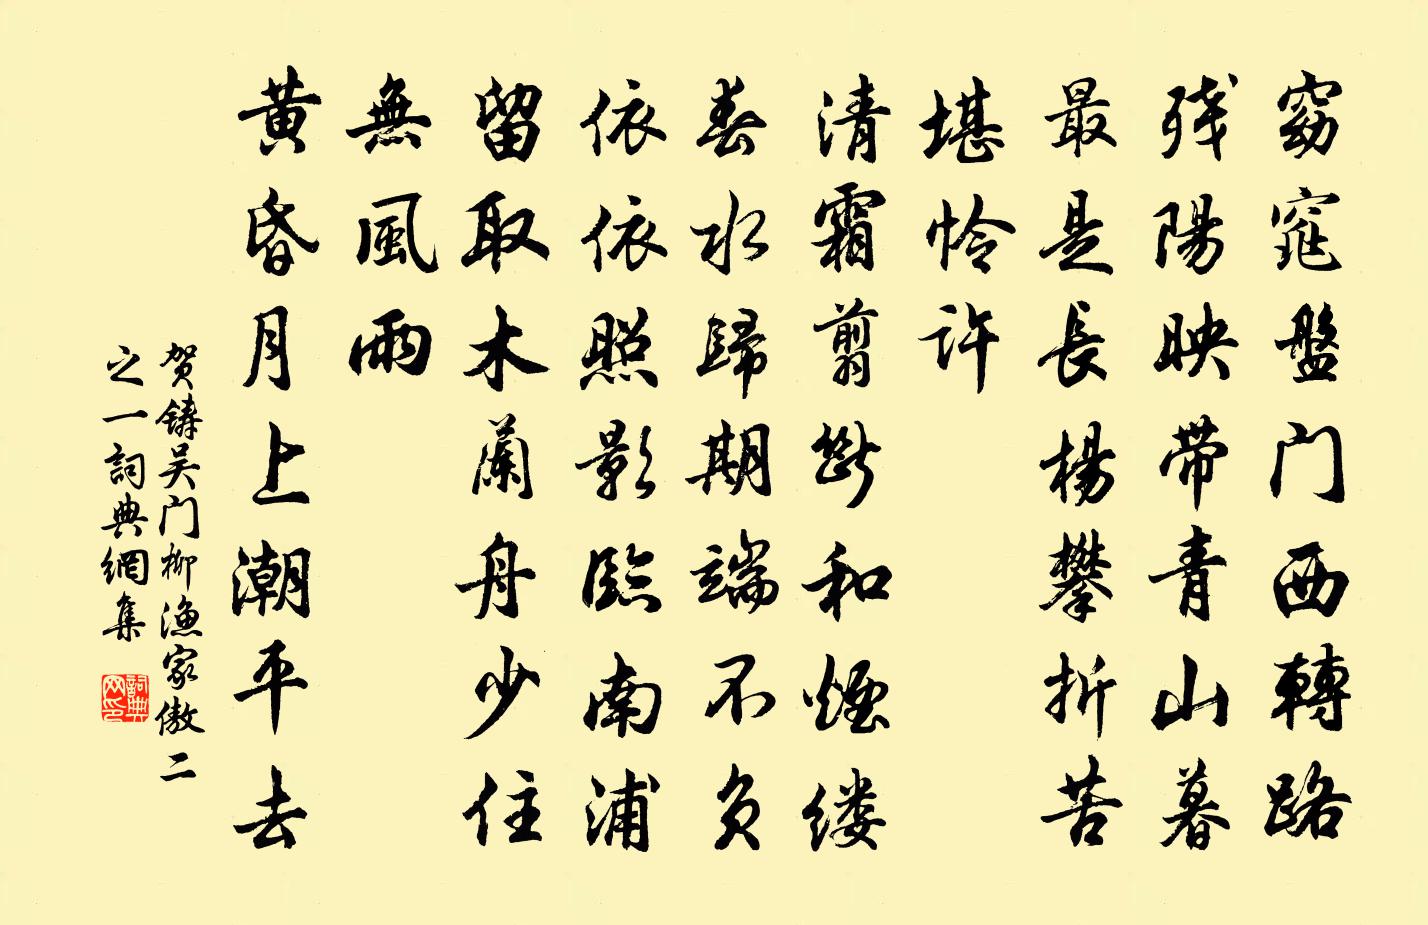 窈窕盤门西轉路
残陽映带青山暮
最是長楊攀折苦
堪怜许
清霜翦断和煙缕
春水歸期端不负
依依照影臨南浦
留取木蘭舟少住
無風雨
黄昏月上潮平去
贺鑄吴门柳渔家傲二
之一詞典網集
詞典网印